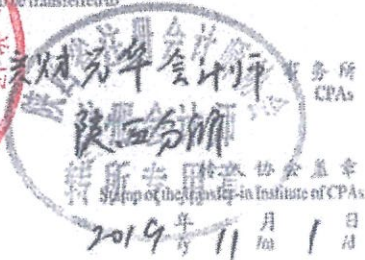 be transferred to
兴财光华会计师 事务所
CPAs
陕西分所
转所专用章
转入协会盖章
Stamp of the transfer-in Institute of CPAs
2019 年 11 月 1 日
/y /m /d